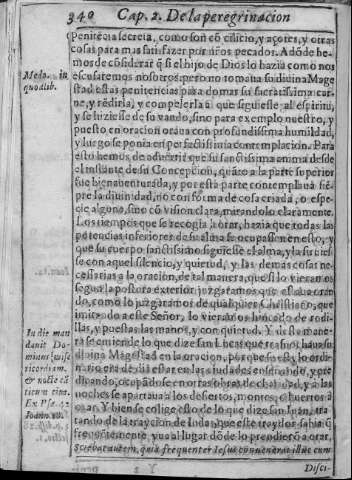 340 Cap. 2. De la peregrinacion
penitẽcia secreta, como son cõ cilicio, y açotes, y otras
cosas para mas satisfazer por nr̃os pecados. Adõde he-
mos de cõsiderar q̃ si el hijo de Dios lo hazia como nos
escusaremos nosotros: pero no tomaua su diuina Mage
Meda. in
quodlib.
stad estas penitencias para domar su sacratissima car-
ne, y rẽdirla, y compelerla a que siguiesse al espiritu,
y se hiziesse de su vando, sino para exemplo nuestro, y
puesto en oracion oraua con profundissima humildad,
y luego se ponia en perfectissima contemplacion. Para
esto hemos de aduertir que su sanctissima anima desde
el instante de su Concepcion, quãto a la parte superior
fue bienauenturada, y por esta parte contemplaua siẽ-
pre la diuinidad, no con forma de cosa criada, o espe-
cie alguna, sino cõ vision clara, mirandolo claramente.
Los tiempos que se recogia a orar, hazia que todas las
potencias inferiores de su alma se ocupassen en esto, y
que su cuerpo sanctissimo siguiesse el alma, y la siruies-
se con aquel silencio, y quietud, y las demas cosas ne-
cessarias a la oracion, de tal manera, que si lo vieramos
segun la postura exterior juzgaramos que estaua oran-
do, como lo juzgaramos de qualquier Christiano, que
imitãdo a este Señor, lo vieramos hincado de rodi-
llas, y puestas las manos, y con quietud. Y desta mane-
In die man
danit Do-
minus mise
ricordiam.
& nocte cã
ticum eius.
Ex Psa. 42
Ioann. 18.
ra se entiende lo que dize san Lucas que
diuina Magestad en la oracion, porque
nario era de dia estar en las ciudades, y pre
dicando, ocupãdose en otras obras de charidad, y a las
noches se apartaua a los desiertos, montes, o huertos a
orar. Y bien se colige esto de lo que dize san Iuan, tra-
tando de la traycion de Iudas, que este traydor sabia q̃
frequentemẽte yua al lugar dõde lo prendierõ a orar,
sciebat autem, quia frequenter Iesus conuenerat illuc cum
Disci-